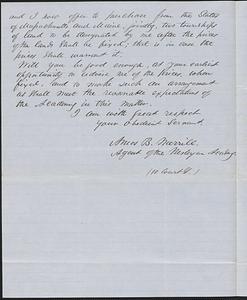 and I now offer to purchase from the States
of Massachusetts and Maine, jointly, two townships
of land to be designated by me after the prices
of the lands shall be fixed; that is in case the
prices shall warrant it.
Will you be good enough, at your earliest
opportunity to advise me of the prices, when
fixed, and to make such an arrangement
as shall meet the reasonable expectations of
the Academy in this matter.
I am with great respect
Your Obedient Servant.
Amos B. Merrill
Agent of the Wesleyan
(10 Court St.)